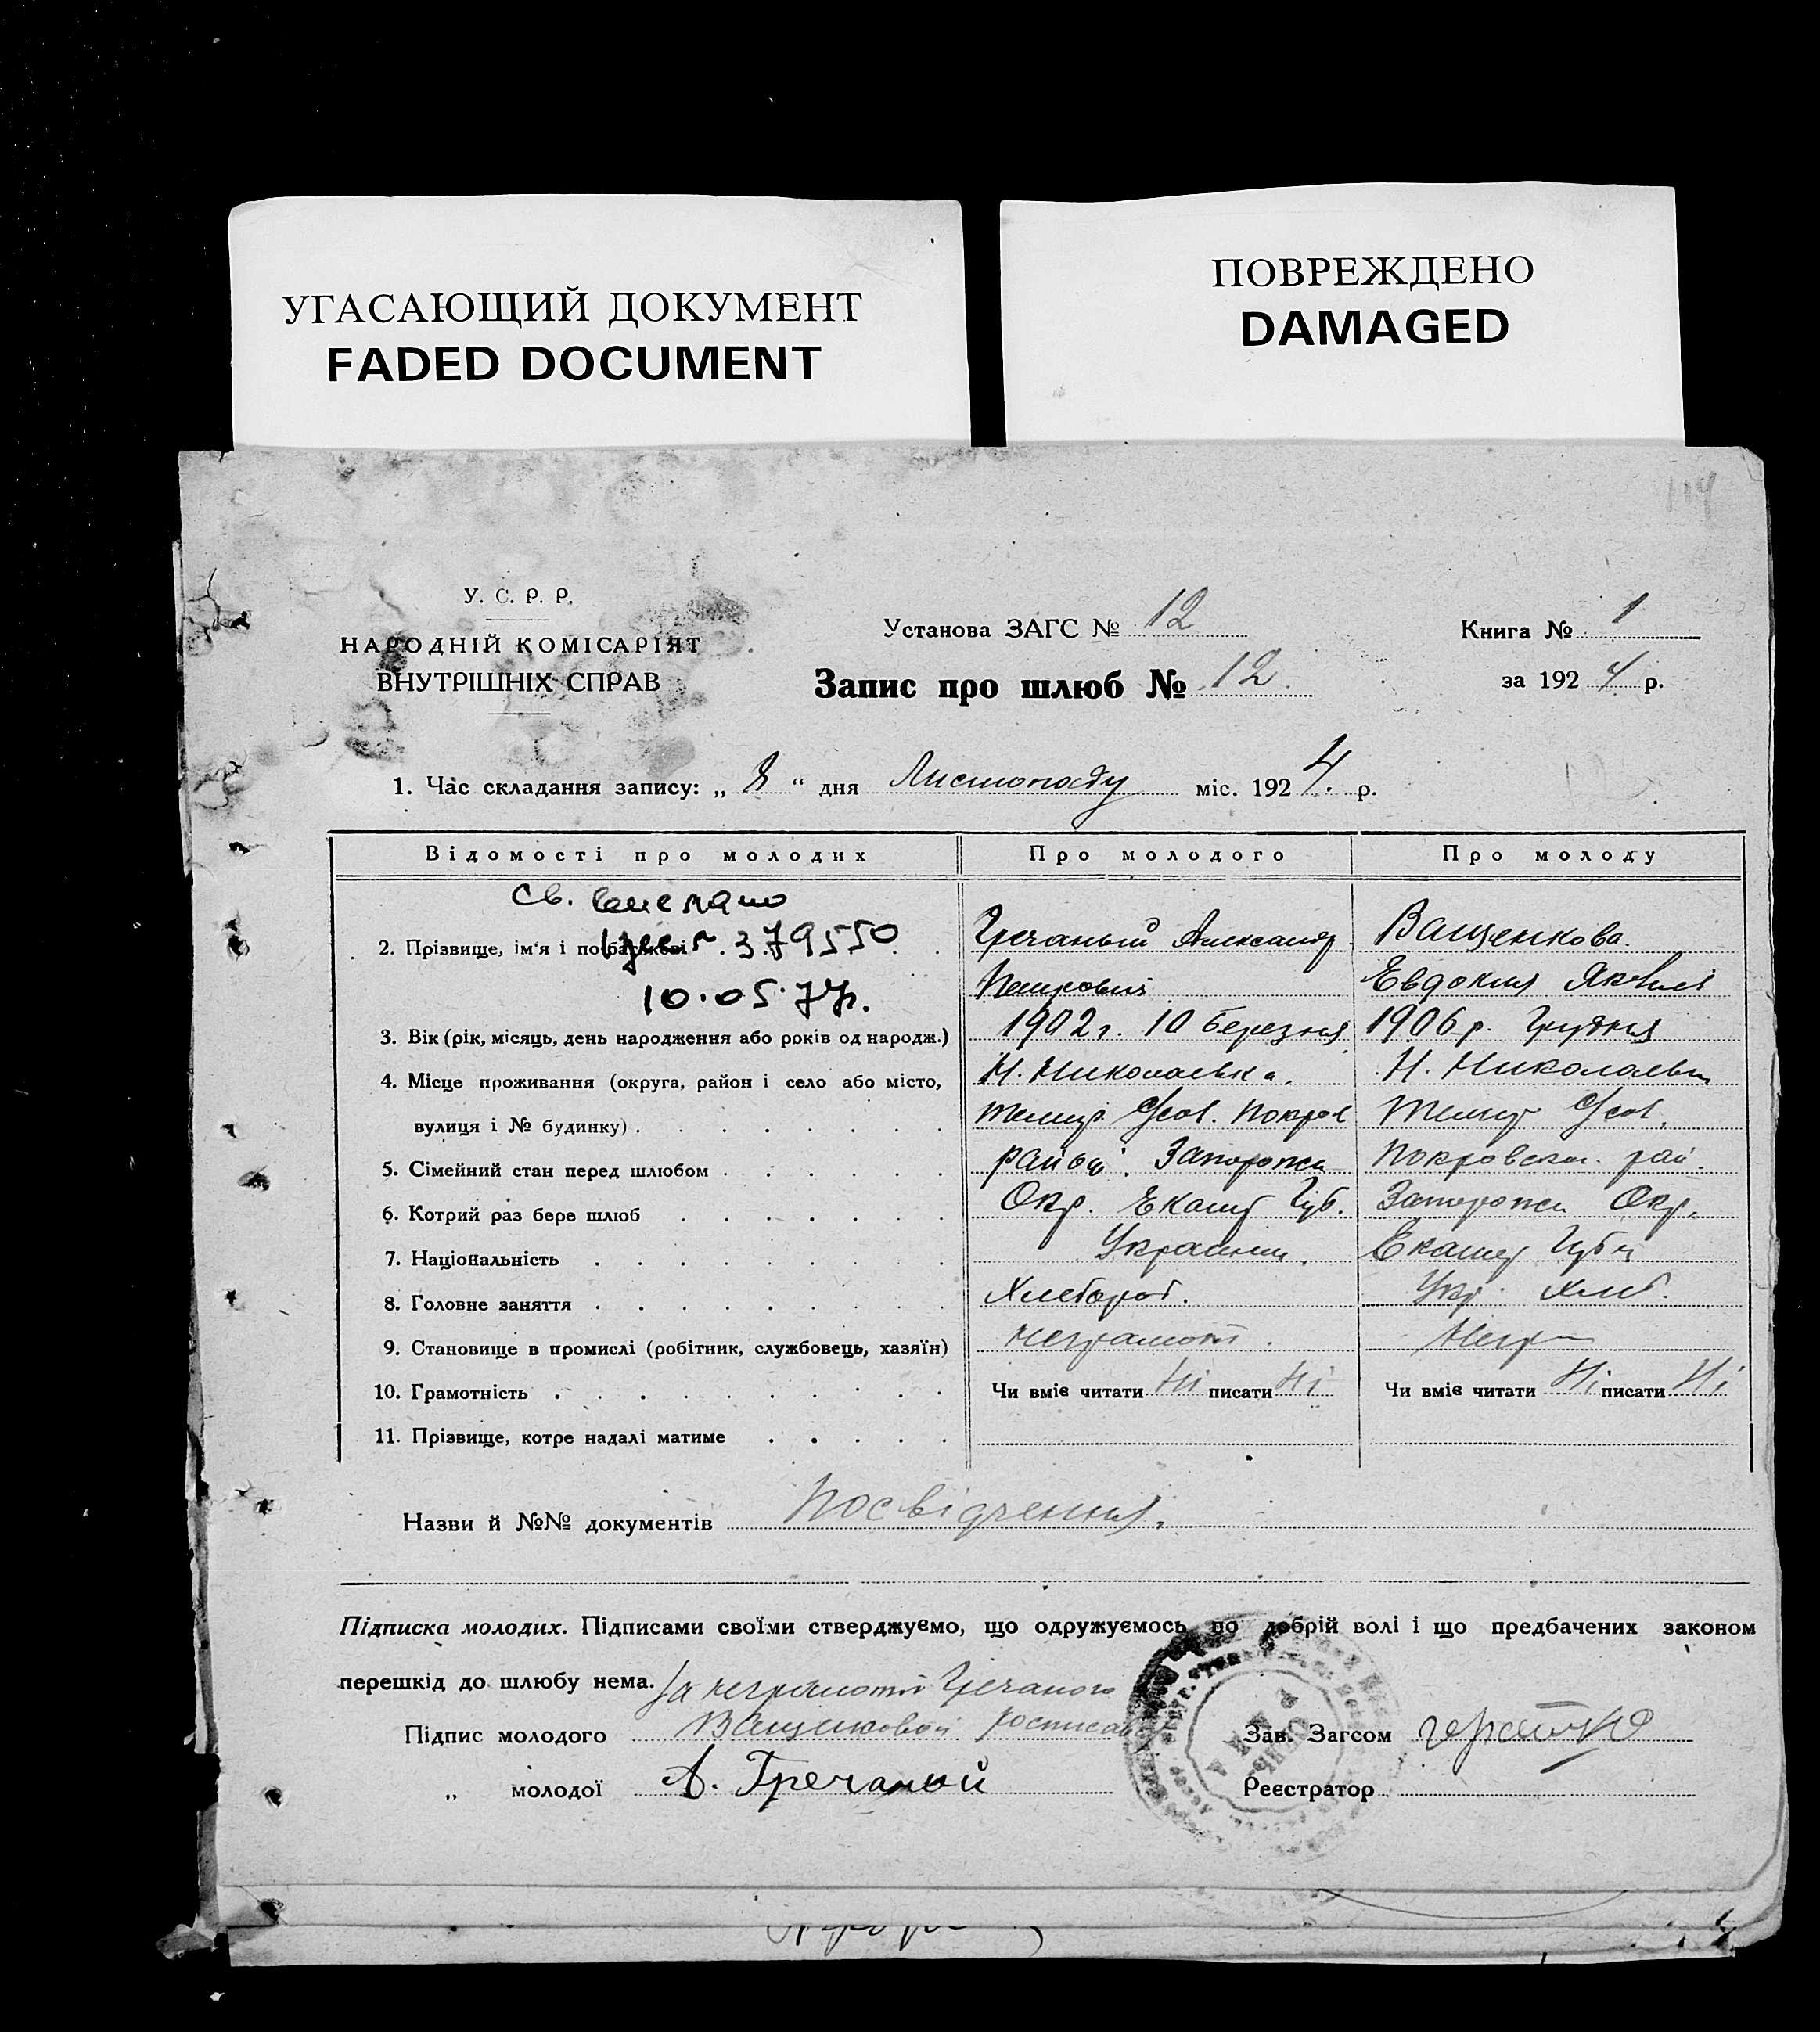 УГАСАЮЩИЙ ДОКУМЕНТ
FADED DOCUMENT
ПОВРЕЖДЕНО
DAMAGED
114
У. С. Р. Р.
НАРОДНІЙ КОМІСАРІЯТ
ВНУТРІШНІХ СПРАВ
Установа ЗАГС № 12
Запис про шлюб № 12.
Книга № 1
за 1924 р.
1. Час складання запису: „ 8 “ дня Листопаду міс. 1924. р.
Відомості про молодих Про молодого Про молоду
Св.
2. Прізвище, ім'я і по батькові 379550 Гречаный Александр Ващенкова.
10.05.77р. Петрович Евдокия Яковл
3. Вік (рік, місяць, день народження або років од народж.) 1902 г. 10 березня 1906 р. Грудня
4. Місце проживання (округа, район і село або місто, Н. Николаевка. Н. Николаевка
вулиця і № будинку) Покров
5. Сімейний стан перед шлюбом район. Запорожск Покровськ. рай.
6. Котрий раз бере шлюб Окр. Екат Губ. Запорожск Окр.
7. Національність Украинец. Екатер Губ
8. Головне заняття Хлебороб. Укр. Хліб.
9. Становище в промислі (робітник, службовець, хазяїн) неграмотн. Негр
10. Грамотність Чи вміє читати Ні писати Ні Чи вміє читати Ні писати Ні
11. Прізвище, котре надалі матиме
Назви й №№ документів Посвідчення.
Підписка молодих. Підписами своїми стверджуємо, що одружуємось по добрій волі і що предбачених законом
перешкід до шлюбу нема. За неграмотн Гречаного
Підпис молодого Ващенковой росписав Зав. Загсом
„ молодої А. Гречаный Реєстратор